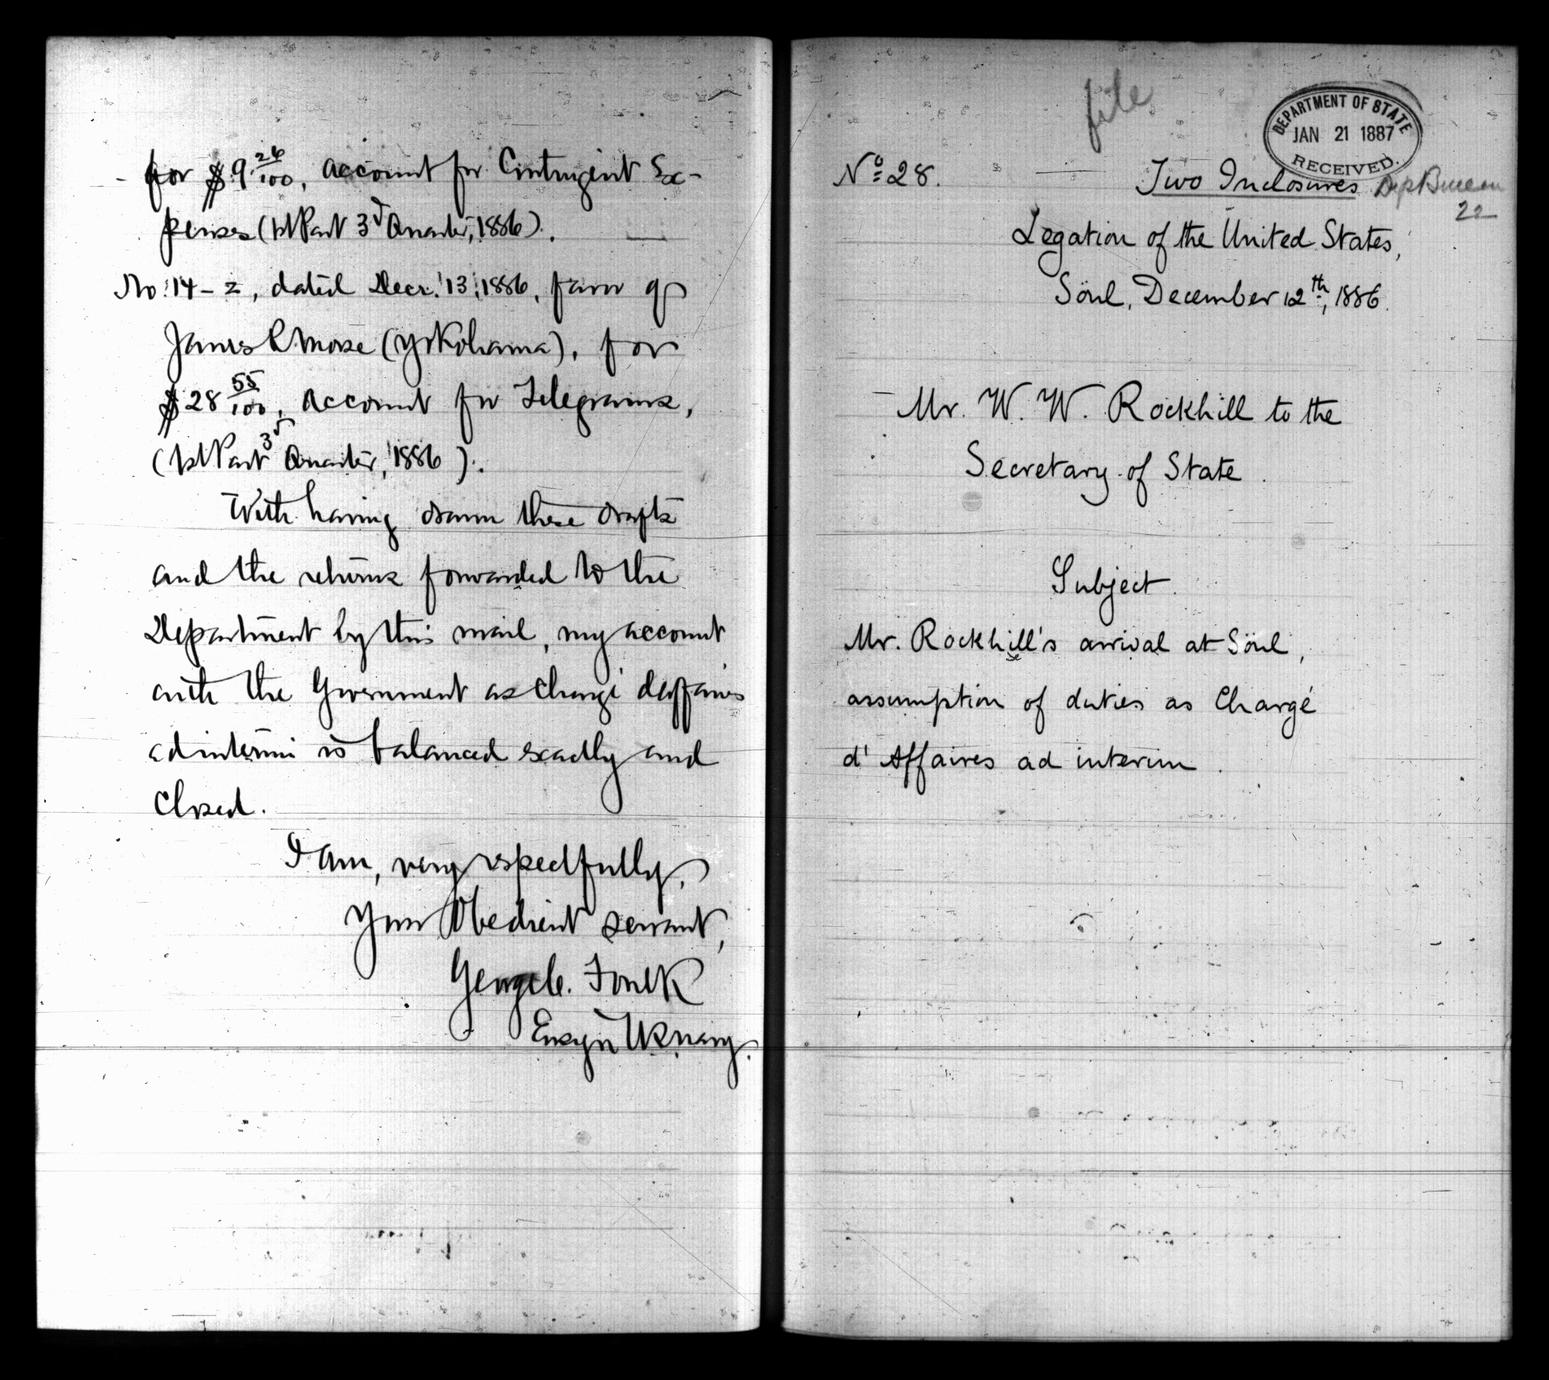 for $9 26/100, account for Contingent Ex-
penses (1st Part 3d Quarter, 1886).
No. 14-2, dated Decr. 13, 1886, favor of
James R Morse (Yokohama), for
$28 55/100, account for Telegrams,
(1st Part 3d Quarter, 1886).
With having drawn these drafts
and the returns forwarded to the
Department by this mail, my account
with the Government as Chargé d'affaires
ad interim is balanced exactly and
closed.
I am, very respectfully,
Your Obedient servant,
George C. Foulk
Ensign U.S. Navy.
file
DEPARTMENT OF STATE
JAN 21 1887
RECEIVED.
Nº 28.
Two Inclosures
Dip Bureau
22
Legation of the United States,
Söul, December 12th, 1886.
Mr. W. W. Rockhill to the
Secretary of State.
Subject.
Mr. Rockhill's arrival at Söul,
assumption of duties as Chargé
d'Affaires ad interim.